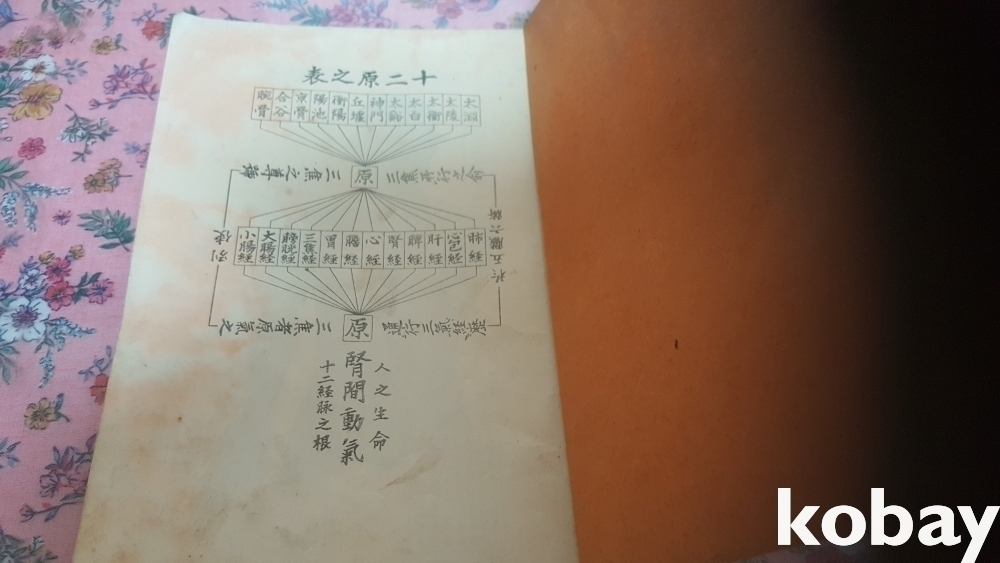 十二原之表
太淵 太陵 太衝 太白 太谿 神門 丘墟 衝陽 陽池 京骨 合谷 腕骨
原
三焦之尊號
肺経 心包経 肝経 脾経 腎経 心経 膽経 胃経 三焦経 膀胱経 大腸経 小腸経
五臓六
別使
原
三焦者原氣之
人之生命
腎間動氣
十二経脉之根
kobay